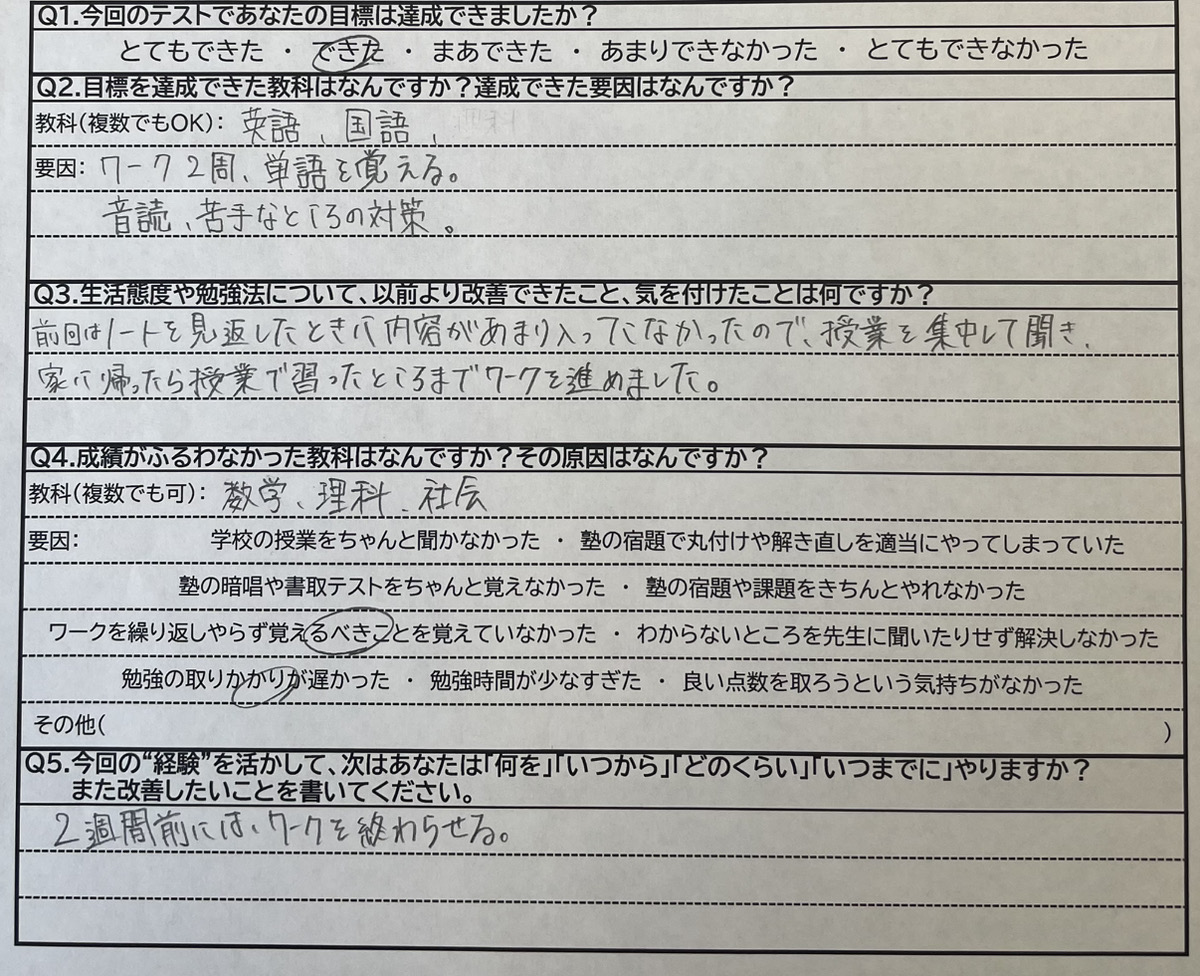 Q1.今回のテストであなたの目標は達成できましたか？
とてもできた ・ できた ・ まあできた ・ あまりできなかった ・ とてもできなかった
Q2.目標を達成できた教科はなんですか？達成できた要因はなんですか？
教科(複数でもOK): 英語、国語、
要因: ワーク2周、単語を覚える。
音読、苦手なところの対策。
Q3.生活態度や勉強法について、以前より改善できたこと、気を付けたことは何ですか？
前回はノートを見返したときに内容があまり入ってこなかったので、授業を集中して聞き、
家に帰ったら授業で習ったところまでワークを進めました。
Q4.成績がふるわなかった教科はなんですか？その原因はなんですか？
教科(複数でも可): 数学、理科、社会
要因: 学校の授業をちゃんと聞かなかった ・ 塾の宿題で丸付けや解き直しを適当にやってしまっていた
塾の暗唱や書取テストをちゃんと覚えなかった ・ 塾の宿題や課題をきちんとやれなかった
ワークを繰り返しやらず覚えるべきことを覚えていなかった ・ わからないところを先生に聞いたりせず解決しなかった
勉強の取りかかりが遅かった ・ 勉強時間が少なすぎた ・ 良い点数を取ろうという気持ちがなかった
その他( )
Q5.今回の“経験”を活かして、次はあなたは「何を」「いつから」「どのくらい」「いつまでに」やりますか？
また改善したいことを書いてください。
2週間前には、ワークを終わらせる。